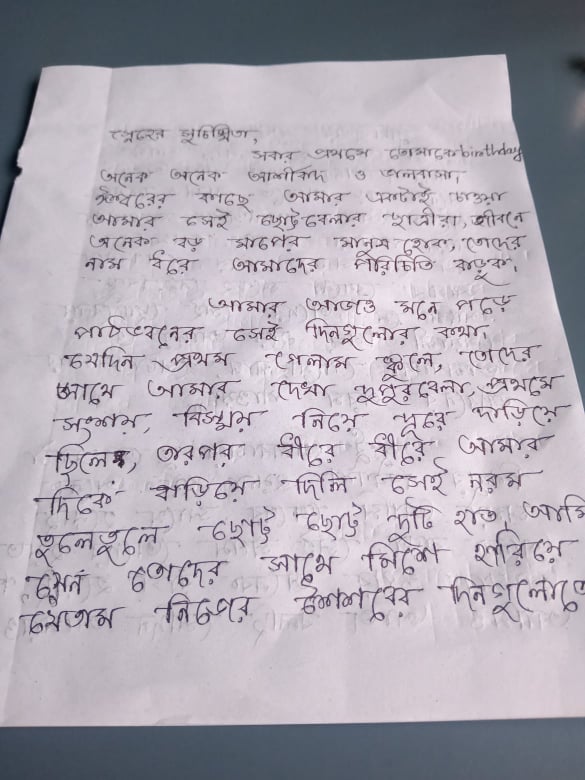 স্নেহের সুচিস্মিতা,
সবার প্রথমে তোমাকে birthday
অনেক অনেক আশীর্বাদ ও ভালবাসা,
ঈশ্বরের কাছে আমার একটাই চাওয়া
আমার সেই ছোট্টবেলার ছাত্রীরা, জীবনে
অনেক বড় মাপের মানুষ হোক, তোদের
নাম ধরে আমাদের পরিচিতি বাড়ুক।
আমার আজও মনে পড়ে
পাঠভবনের সেই দিনগুলোর কথা,
যেদিন প্রথম গেলাম স্কুলে, তোদের
সাথে আমার দেখা দুপুরবেলা, প্রথমে
সংশয়, বিস্ময় নিয়ে দূরে দাড়িয়ে
ছিলে, তারপর ধীরে ধীরে আমার
দিকে বাড়িয়ে দিলি সেই নরম
তুলেতুলে ছোট্ট ছোট্ট দুটি হাত, আমি
যেন তোদের সাথে মিশে হারিয়ে
যেতাম নিজের শৈশবের দিনগুলোতে